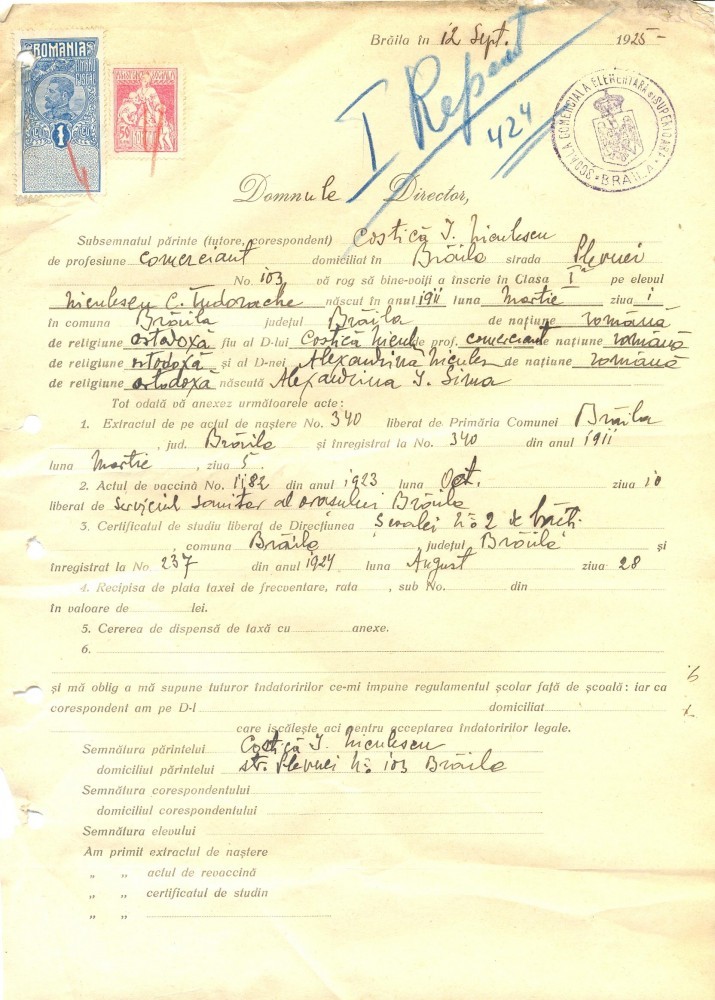 Brăila în 12 Sept. 1925
ROMANIA
TIMBRU FISCAL
1
50
I Repetent
424
ȘCOALA COMERCIALĂ ELEMENTARĂ ȘI SUPERIOARĂ * BRĂILA *
Domnule Director,
Subsemnatul părinte (tutore, corespondent) Costică I. Niculescu
de profesiune comerciant domiciliat în Brăila strada Plevnei
No. 103 vă rog să bine-voiți a înscrie în Clasa I a pe elevul
Niculescu C. Tudorache născut în anul 1911 luna Martie ziua 1
în comuna Brăila județul Brăila de națiune română
de religiune ortodoxă fiu al D-lui Costică Nicul de prof. comerciant de națiune română
de religiune ortodoxă și al D-nei Alexandrina Nicules de națiune română
de religiune ortodoxă născută Alexandrina I. Sima
Tot odată vă anexez următoarele acte:
1. Extractul de pe actul de naștere No. 340 liberat de Primăria Comunei Brăila
, jud. Brăila și înregistrat la No. 340 din anul 1911
luna Martie, ziua 5.
2. Actul de vaccină No. 1182 din anul 1923 luna Oct. ziua 10
liberat de Serviciul Sanitar al orașului Brăila
3. Certificatul de studiu liberat de Direcțiunea Școalei No 2 de băeți
, comuna Brăila județul Brăila și
înregistrat la No. 237 din anul 1924 luna August ziua 28
4. Recipisa de plata taxei de frecventare, rata , sub No. din
în valoare de lei.
5. Cererea de dispensă de taxă cu anexe.
6.
și mă oblig a mă supune tuturor îndatoririlor ce-mi impune regulamentul școlar față de școală: iar ca
corespondent am pe D-l domiciliat
care iscălește aci pentru acceptarea îndatoririlor legale.
Semnătura părintelui Costică I. Niculescu
domiciliul părintelui str. Plevnei No. 103 Brăila
Semnătura corespondentului
domiciliul corespondentului
Semnătura elevului
Am primit extractul de naștere
„ „ actul de revaccină
„ „ certificatul de studiu
„ „